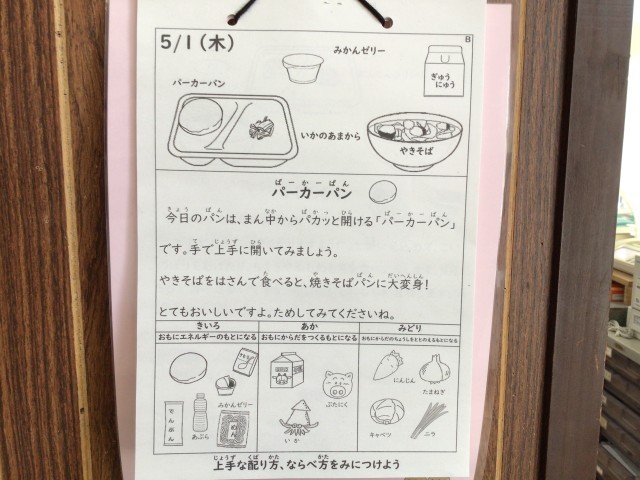 5/1(木)
B
みかんゼリー
ぎゅう
にゅう
パーカーパン
いかのあまから
やきそば
ぱーかーぱん
パーカーパン
きょう ぱん なか ぱかっ ひら ぱーかーぱん
今日のパンは、まん中からパカッと開ける「パーカーパン」
て じょうず ひら
です。手で上手に開いてみましょう。
た や ぱん だいへんしん
やきそばをはさんで食べると、焼きそばパンに大変身!
とてもおいしいですよ。ためしてみてくださいね。
きいろ
おもにエネルギーのもとになる
あか
おもにからだをつくるもとになる
みどり
おもにからだのちょうしをととのえるもとになる
みかんゼリー
でんぷん
あぶら
めん
ぶたにく
いか
にんじん
たまねぎ
キャベツ
ニラ
じょうず くば かた かた
上手な配り方、ならべ方をみにつけよう